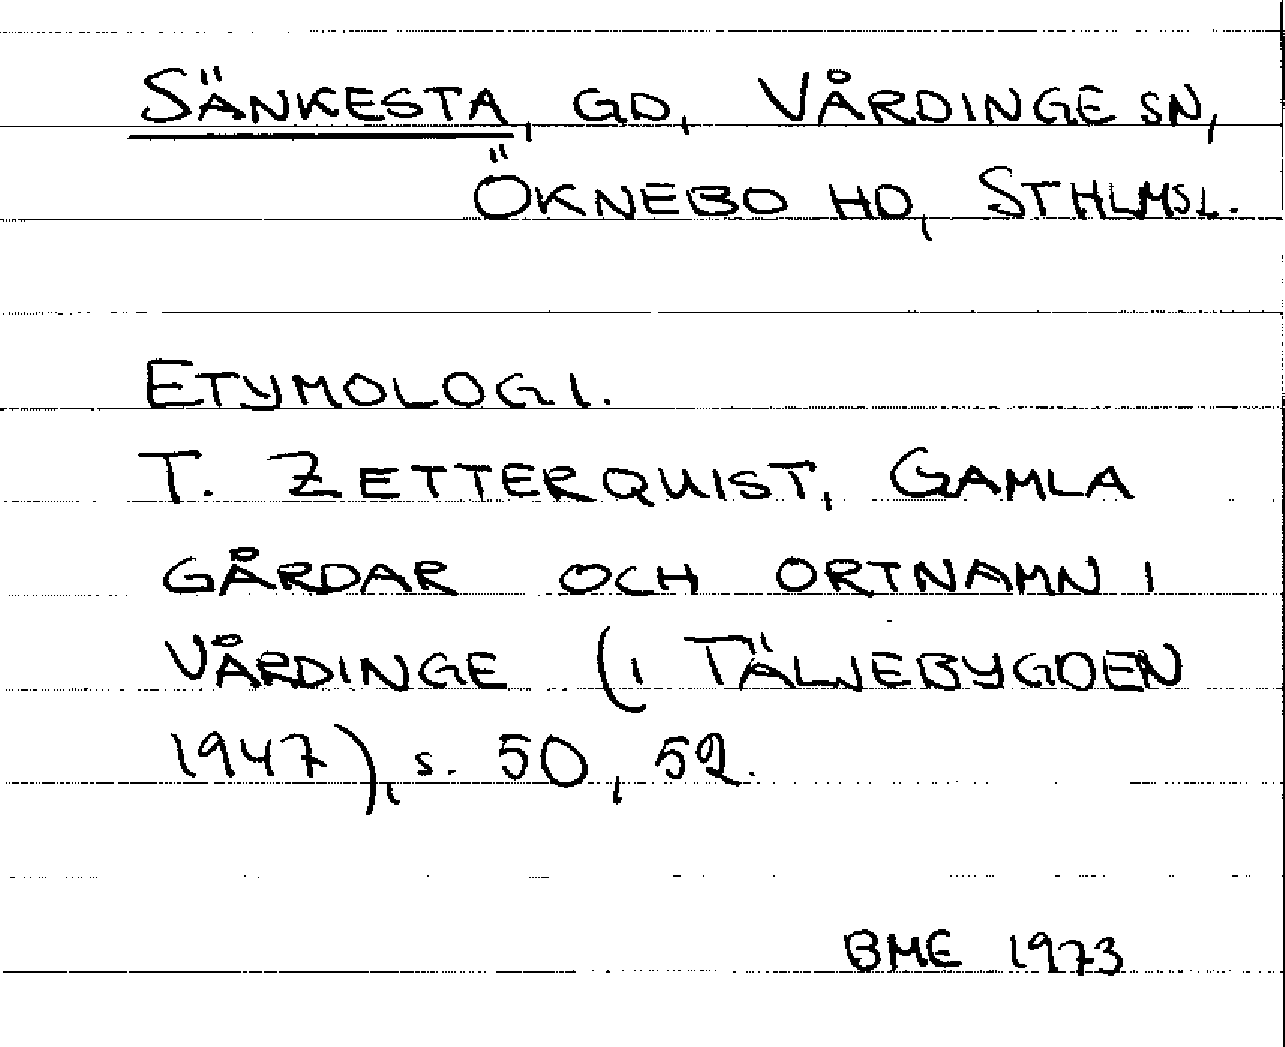 SÄNKESTA, GD, VÅRDINGE SN,
ÖKNEBO HD, STHLMSL.
ETYMOLOGI.
T. ZETTERQUIST, GAMLA
GÅRDAR OCH ORTNAMN I
VÅRDINGE (I TÄLJEBYGDEN
1947), s. 50, 52.
BME 1973